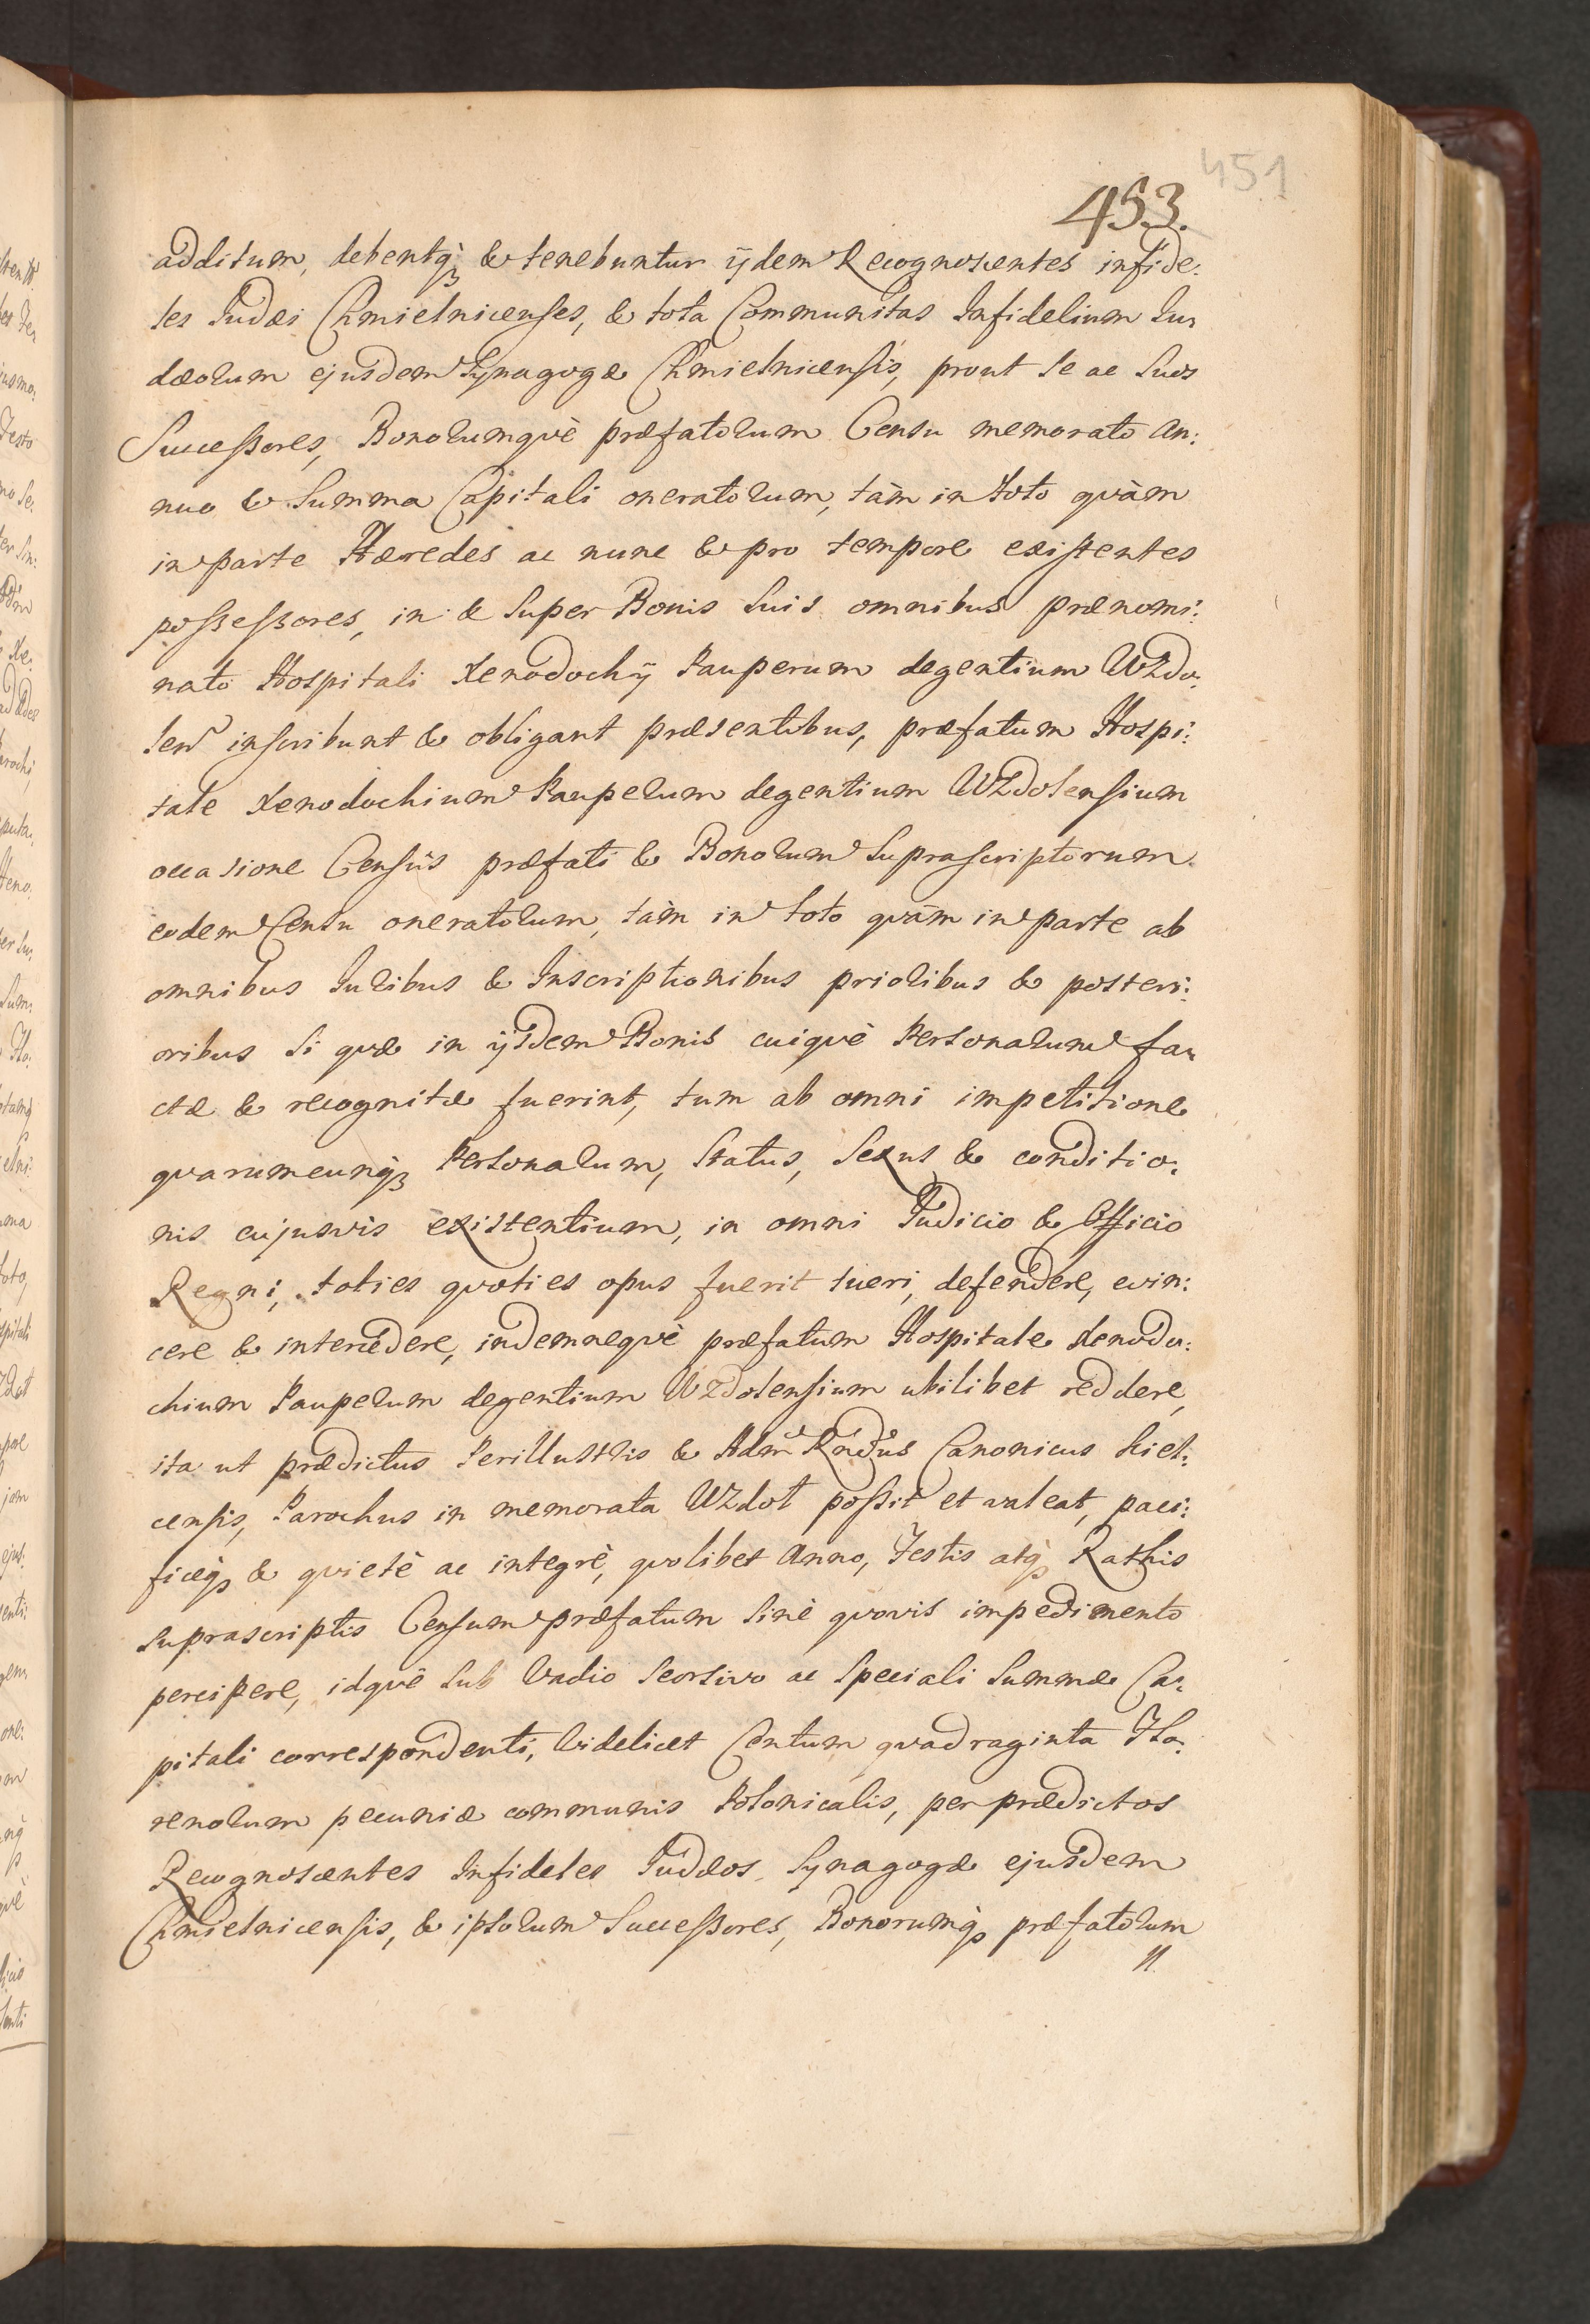 451
453.
additum, debentq́ꝫ & tenebuntur ijdem Recognoscentes infide:
les Judæi Chmielnicenses, & tota Communitas Infidelium Ju,
dæorum ejusdem Synagogæ Chmielnicensis, prout se ac suos
Successores, Bonorumq́vè præfatorum Censu memorato An:
nuo & Summa Capitali oneratorum, tàm in toto qvàm
in parte Hæredes ac nunc & pro tempore existentes
possessores, in & super Bonis suis omnibus prænomi:
nato Hospitali Xenodochij Pauperum degentium Wzdo:
len inscribunt & obligant præsentibus, præfatum Hospi:
tale Xenodochium Pauperum degentium Wzdolensium
occasione Censûs præfati & Bonorum suprascriptorum
eodem Censu oneratorum, tàm in toto qvàm in parte ab
omnibus Juribus & Inscriptionibus prioribus & posteri:
oribus si qvæ in ijsdem Bonis cuiqvè Personarum fa,
ctæ & recognitæ fuerint, tum ab omni impetitione
qvarumcunq́ꝫ Personarum, status, sexus & conditio:
nis cujusvis existentium, in omni Judicio & Officio
Regni, toties qvoties opus fuerit tueri, defendere, evin:
cere & intercedere, indemneqvè præfatum Hospitale Xenodo:
chium Pauperum degentium Wzdolensium ubilibet reddere,
ita ut prædictus Perillustris & Adm Rndus Canonicus Kiel:
censis, Parochus in memorata Wzdol possit et valeat, paci:
ficeq́ꝫ & qvietè ac integrè, qvolibet Anno, Festis atq́ꝫ Rathis
suprascriptis Censum præfatum sinè qvovis impedimento
percipere, idqvè sub Vadio seorsivo ac speciali summæ Ca:
pitali correspondenti, videlicet Centum qvadraginta Flo:
renorum pecuniæ communis Polonicalis, per prædictos
Recognoscentes Infideles Judæos Synagogæ ejusdem
Chmielnicensis, & ipsorum Successores, Bonorumq́ꝫ præfatorum